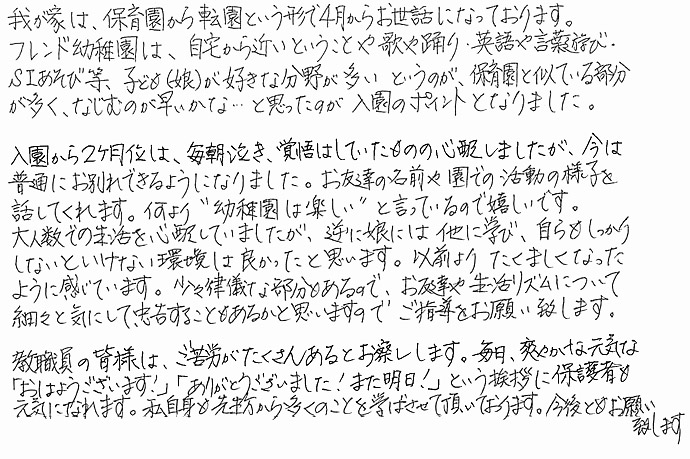 我が家は、保育園から転園という形で4月からお世話になっております。
フレンド幼稚園は、自宅から近いということや歌や踊り・英語や言葉遊び・
SIあそび等、子ども(娘)が好きな分野が多いというのが、保育園と似ている部分
が多く、なじむのが早いかな…と思ったのが入園のポイントとなりました。
入園から2ヶ月位は、毎朝泣き、覚悟はしていたものの心配しましたが、今は
普通にお別れできるようになりました。お友達の名前や園での活動の様子を
話してくれます。何より"幼稚園は楽しい"と言っているので嬉しいです。
大人数での生活を心配していましたが、逆に娘には他に学び、自らもしっかり
しないといけない環境は良かったと思います。以前よりたくましくなった
ように感じています。少々律儀な部分もあるので、お友達や生活リズムについて
細々と気にして、忠告することもあるかと思いますのでご指導をお願い致します。
教職員の皆様は、ご苦労がたくさんあるとお察しします。毎日、爽やかな元気な
「おはようございます!」「ありがとうございました!また明日!」という挨拶に保護者も
元気になれます。私自身も先生方から多くのことを学ばさせて頂いております。今後ともお願い
致します